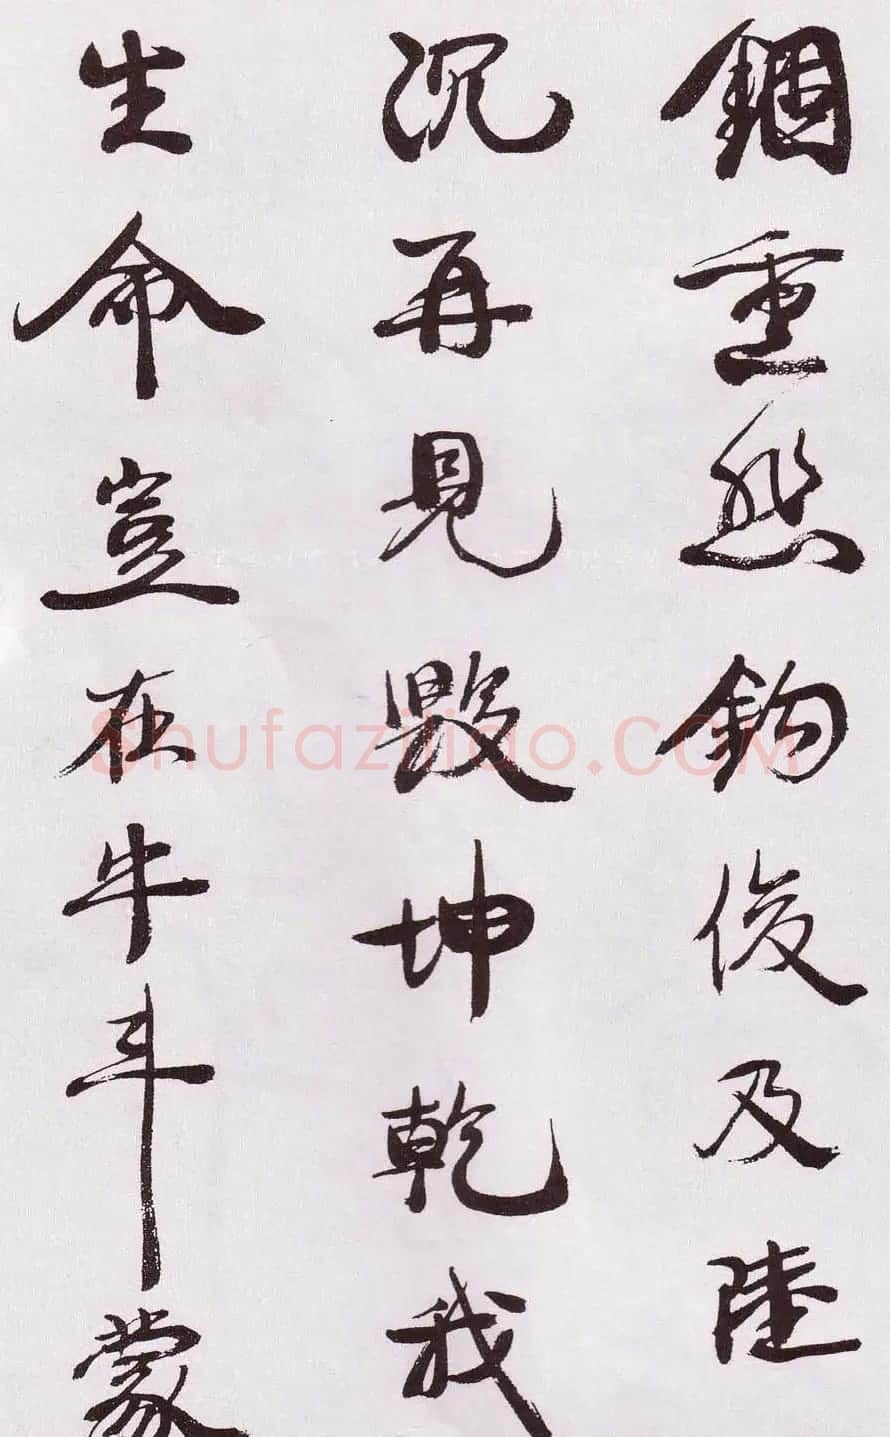 錮重然鈎俊及陸
沉再見毀坤乾我
生命豈在牛斗蒙
Shufaziliao.COM